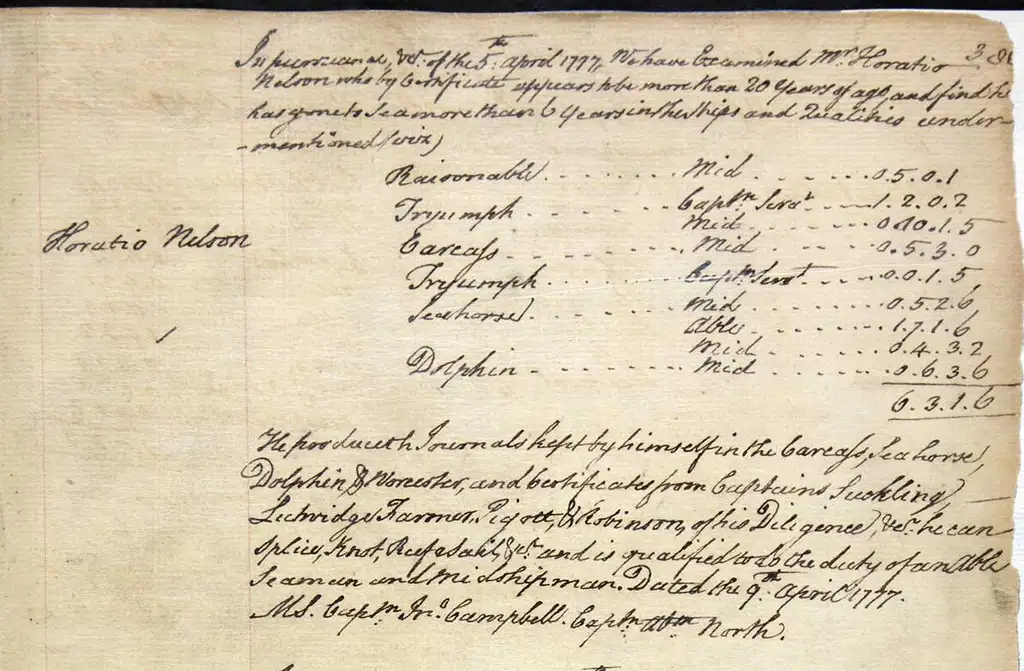 In pursuance, &c. of the 5th. April 1777, We have Examined Mr. Horatio 38
Nelson who by Certificate appears to be more than 20 Years of age, and find he
has gone to Sea more than 6 Years in the Ships and Qualities under-
-mentioned (viz)
Raisonable. Mid 0.5.0.1
Tryumph Captns. Servt. 1.2.0.2
Mid 0.10.1.5
Horatio Nelson
Carcass Mid 0.5.3.0
Tryumph Captns. Servt. 0.0.1.5
Seahorse Mid 0.5.2.6
Able 1.7.1.6
Mid 0.4.3.2
Dolphin Mid 0.6.3.6
6.3.1.6
He produceth Journals kept by himself in the Carcass, Seahorse,
Dolphin, & Worcester, and Certificates from Captains Suckling
Lutwidge, Farmer, Pigott, & Robinson, of his Diligence, &c. he can
Splice, Knot, Reef a Sail, &c. and is qualified to do the duty of an Able
Seaman and Midshipman. Dated the 9th. April 1777.
MS. Captn. Jno. Campbell. Captn. Abm North.